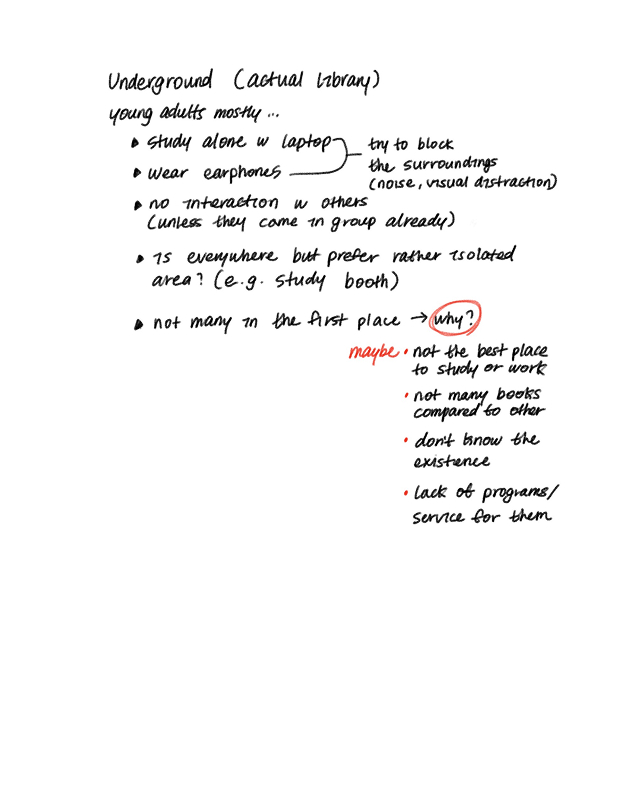 Underground (actual library)
young adults mostly...
▸ study alone w laptop
▸ wear earphones
try to block
the surroundings
(noise, visual distraction)
▸ no interaction w others
(unless they came in group already)
▸ is everywhere but prefer rather isolated
area? (e.g. study booth)
▸ not many in the first place → why?
maybe • not the best place
to study or work
• not many books
compared to other
• don't know the
existence
• lack of programs/
service for them